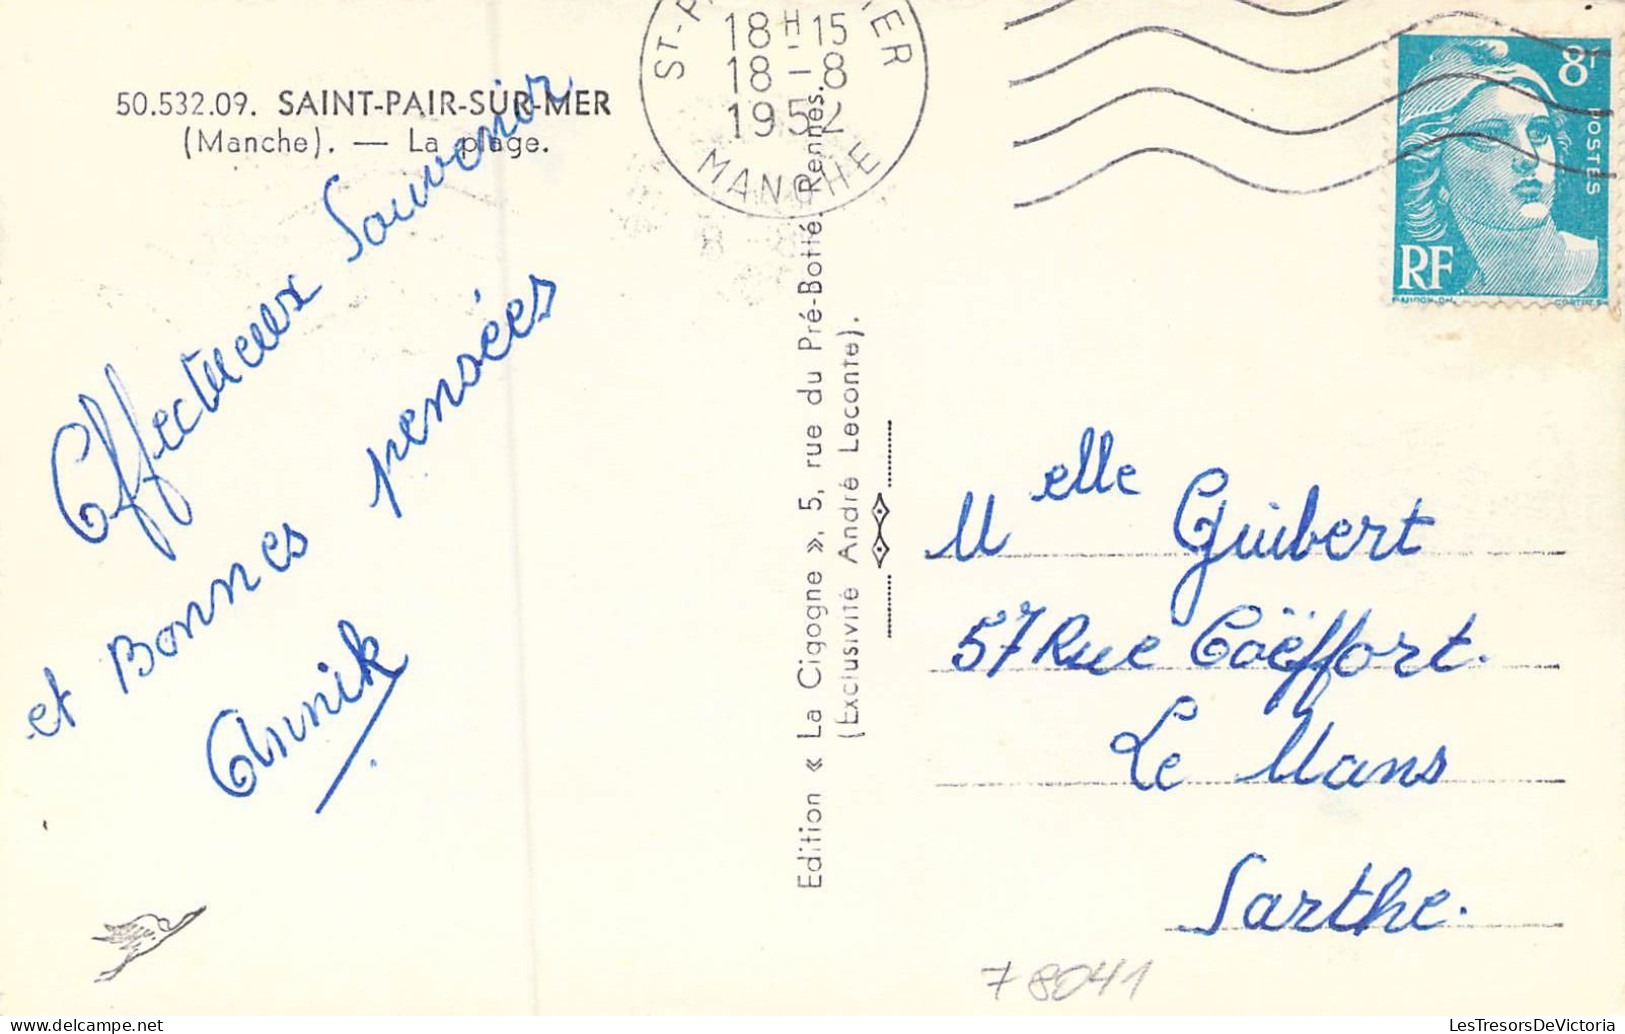 50.532.09. SAINT-PAIR-SUR-MER
(Manche). — La plage.
Effectueux Souvenir
et Bonnes pensées
Annik
Edition « La Cigogne », 5, rue du Pré-Botté, Rennes.
(Exclusivité André Leconte).
18H-15
18-8
1952
MANCHE
8F
POSTES
RF
Melle Guibert
57 Rue Coëffort.
Le Mans
Sarthe.
78041
LesTresorsDeVictoria